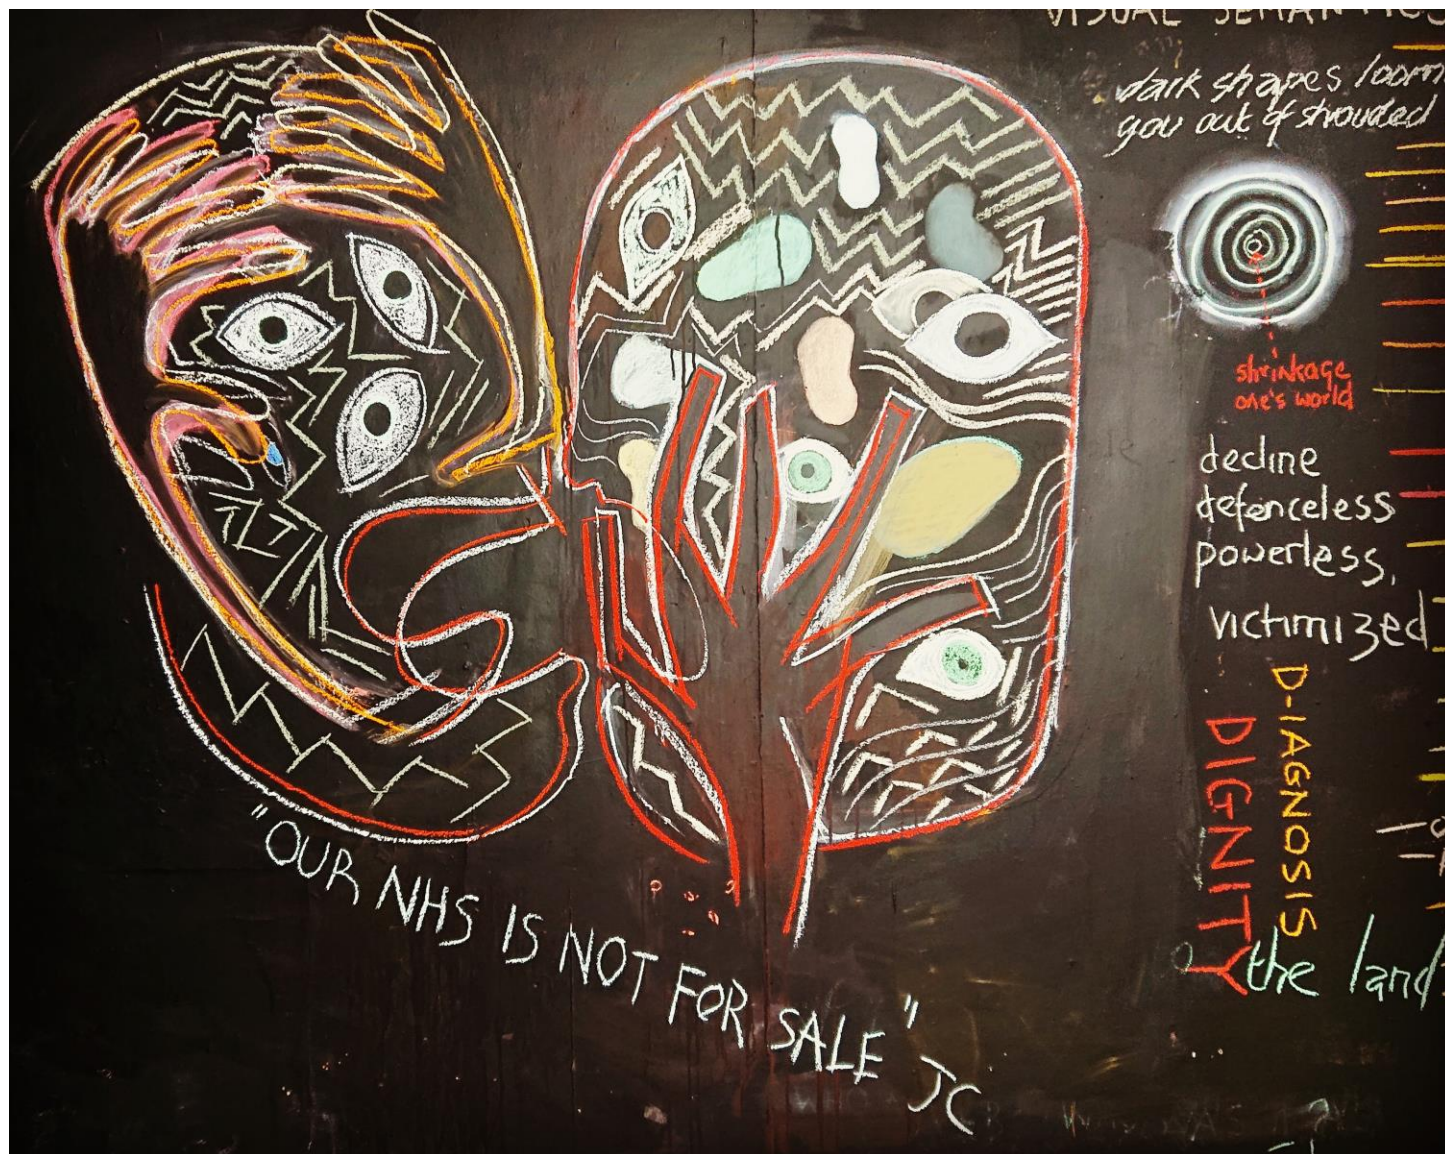 VISUAL SEMANTICS
dark shapes loom
you out of shrouded
shrinkage
one's world
decline
defenceless
powerless,
victimized
D-IAGNOSIS
DIGNITY
the land
"OUR NHS IS NOT FOR SALE" JC